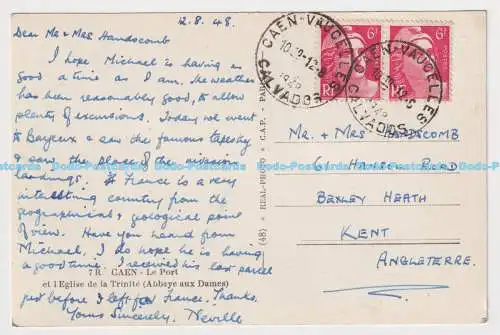 12.8.48.
Dear Mr & Mrs Handscomb
I hope Michael is having as
good a time as I am. The weather
has been reasonably good, to allow
plenty of excursions. Today we went
to Bayeux & saw the famous tapestry
& saw the place of the invasion
landings. France is a very
interesting country from the
geographical & geological point
of view. Have you heard from
Michael. I do hope he is having
a good time. I received his last parcel
just before I left for France. Thanks.
Yours Sincerely, Neville
7 R CAEN - Le Port
et l'Eglise de la Trinité (Abbaye aux Dames)
(48) ★ REAL-PHOTO ★ C.A.P. ★ PARIS
CAEN-VAUCELLES
1948
CALVADOS
6F
RF
CAEN-VAUCELLES
1948
CALVADOS
6F
MR. + MRS HANDSCOMB
61 HANSOL ROAD
BEXLEY HEATH
KENT
ANGLETERRE.
www.Ada-Postcards.com